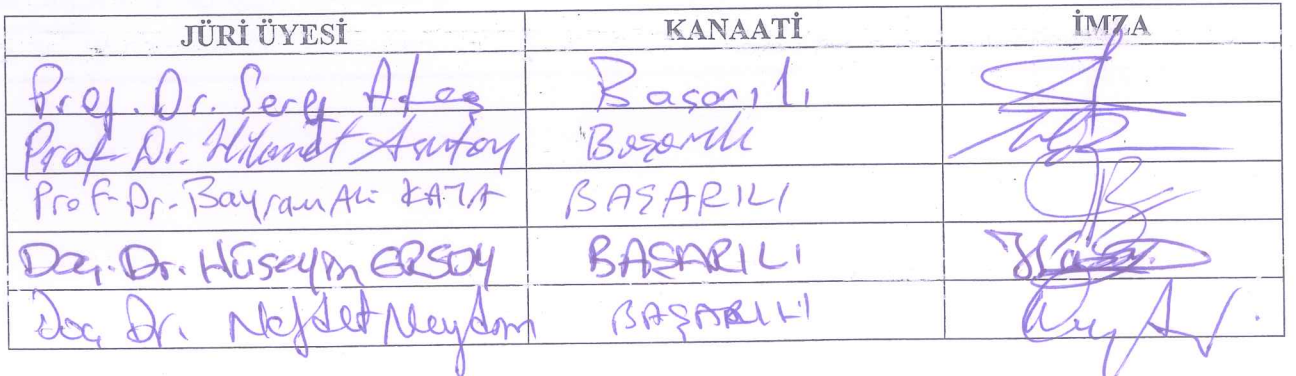 JÜRİ ÜYESİ KANAATİ İMZA
Prof. Dr. Ateş Başarılı
Prof. Dr. Başarılı
Prof. Dr. Bayram Ali BAŞARILI
Doç. Dr. Hüseyin ERSOY BAŞARILI
Doç. Dr. Neydim BAŞARILI